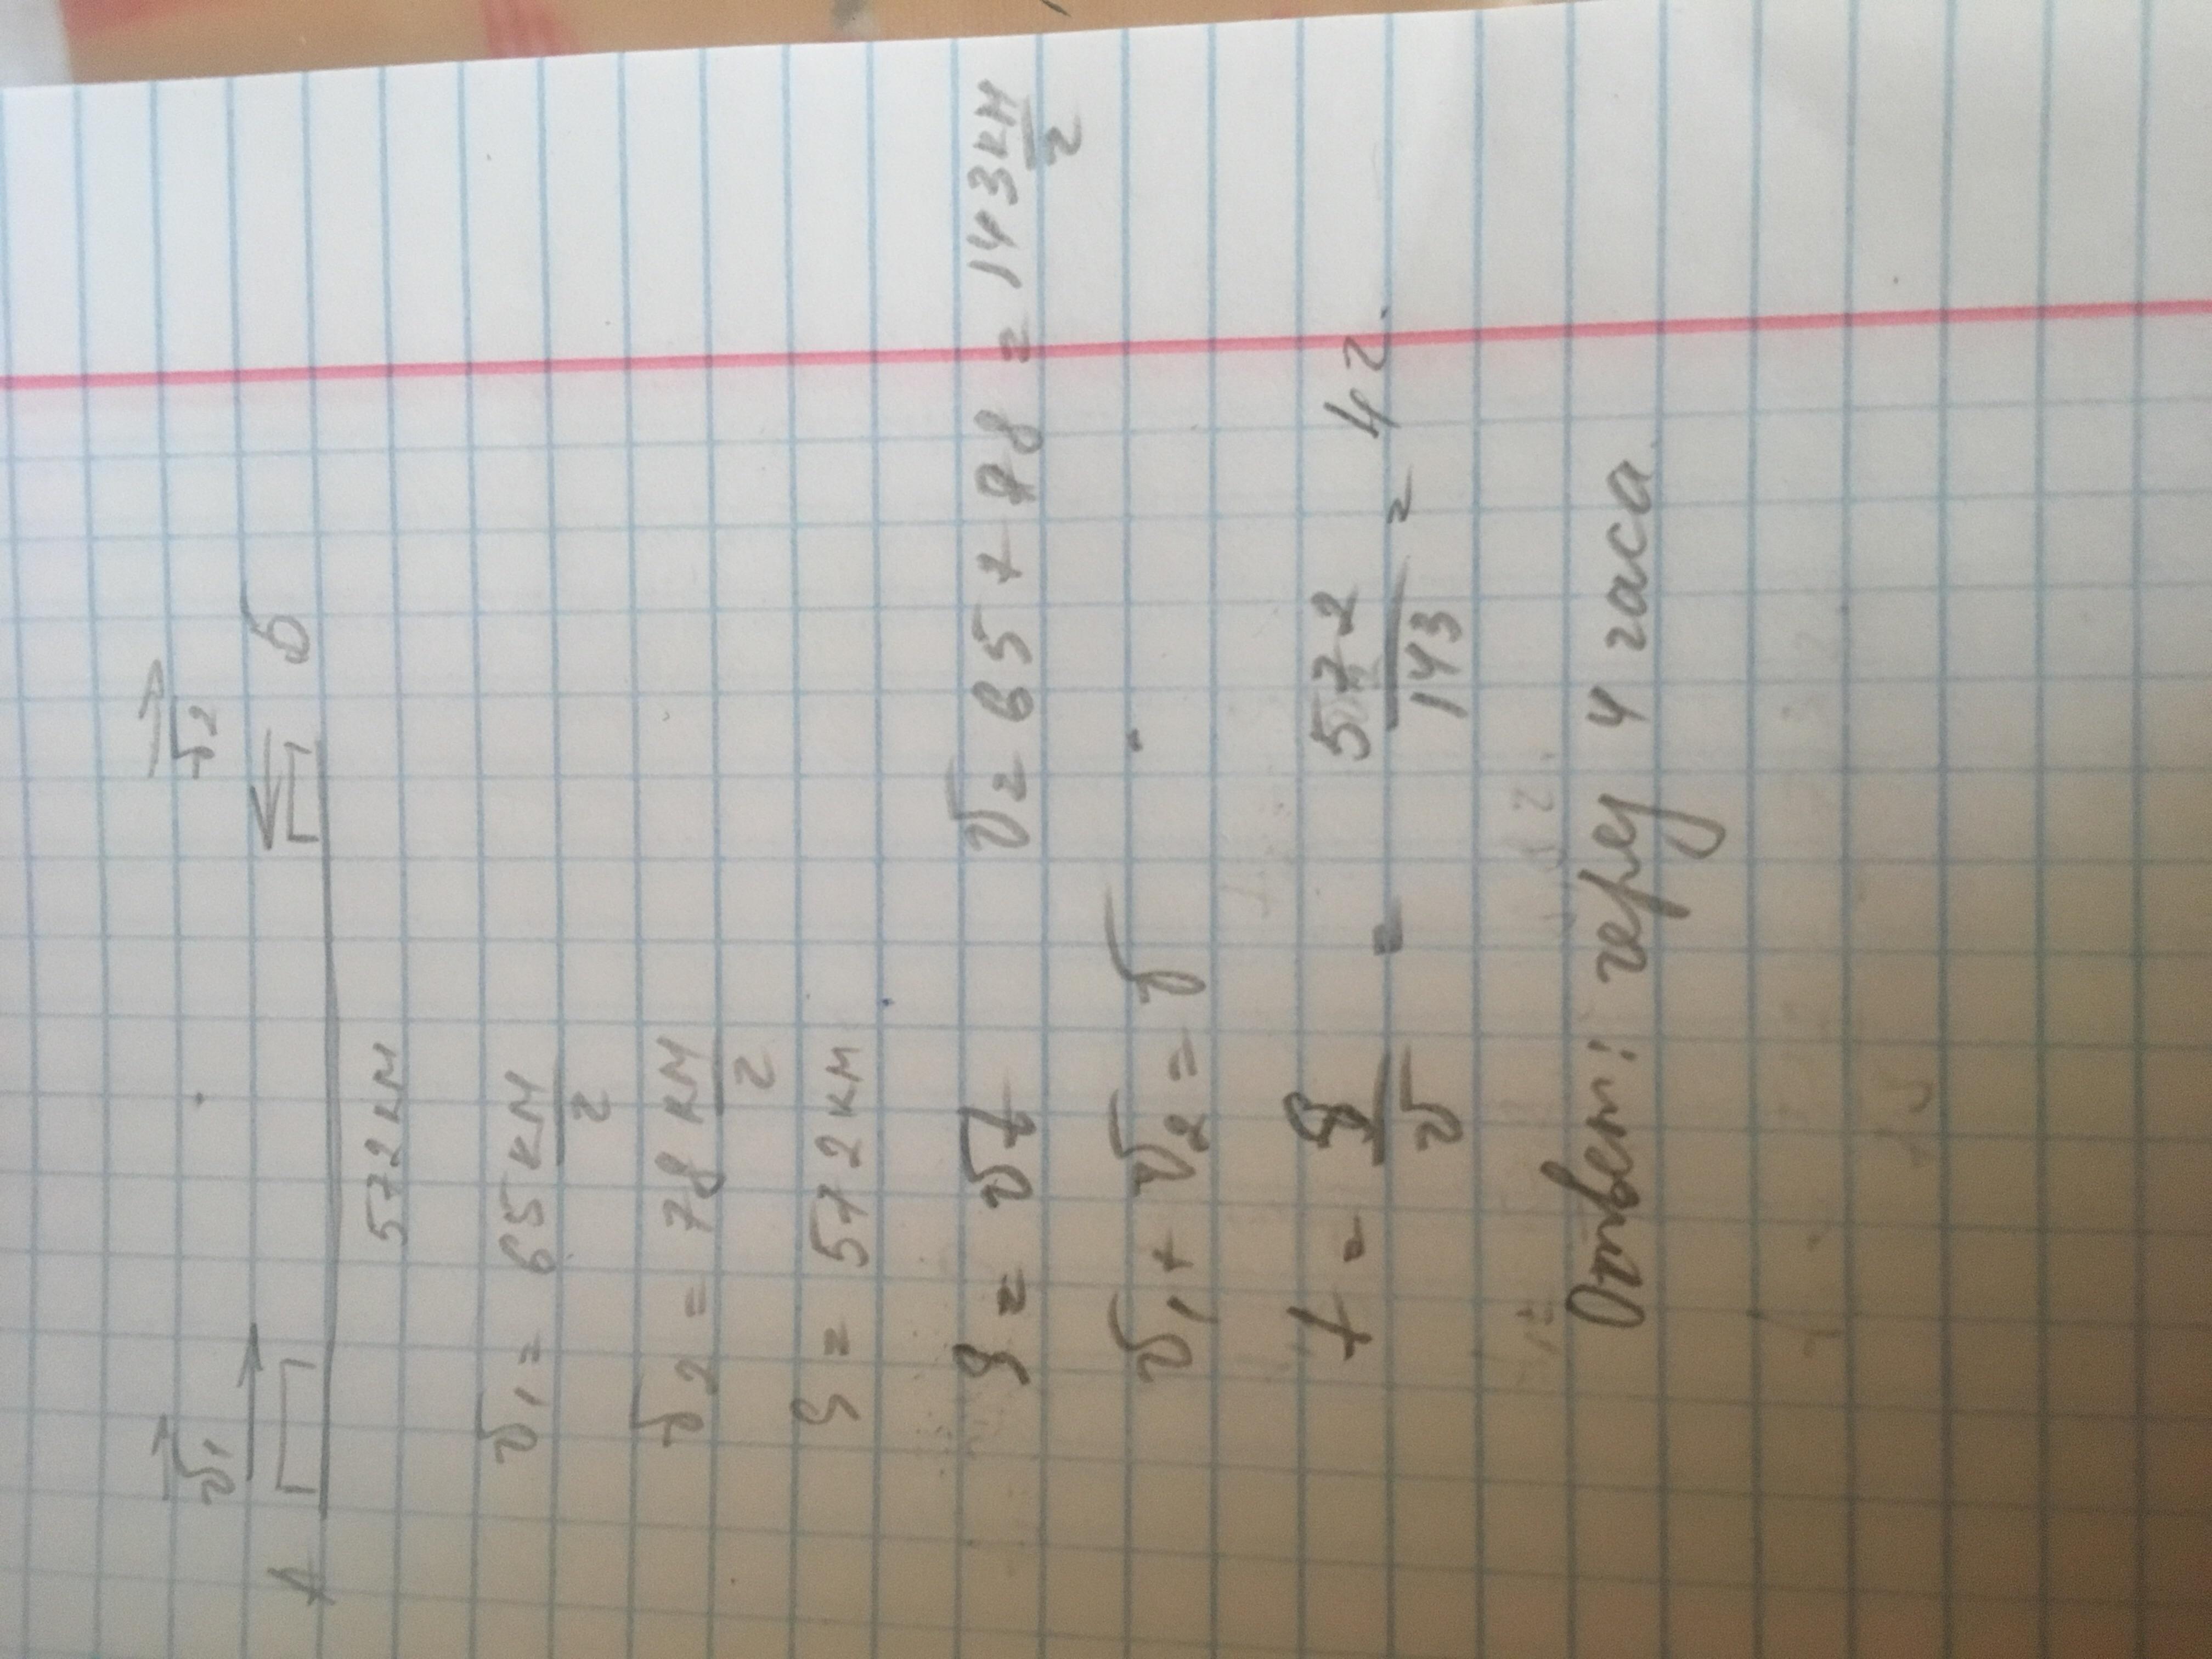 v₁ v₂
А Б
572 км
v₁ = 65 км/ч
v₂ = 78 км/ч
S = 572 км
S = vt v = 65 + 78 = 143 км/ч
v₁ + v₂ = v
t = S/v = 572/143 = 4 ч.
Ответ: через 4 часа.